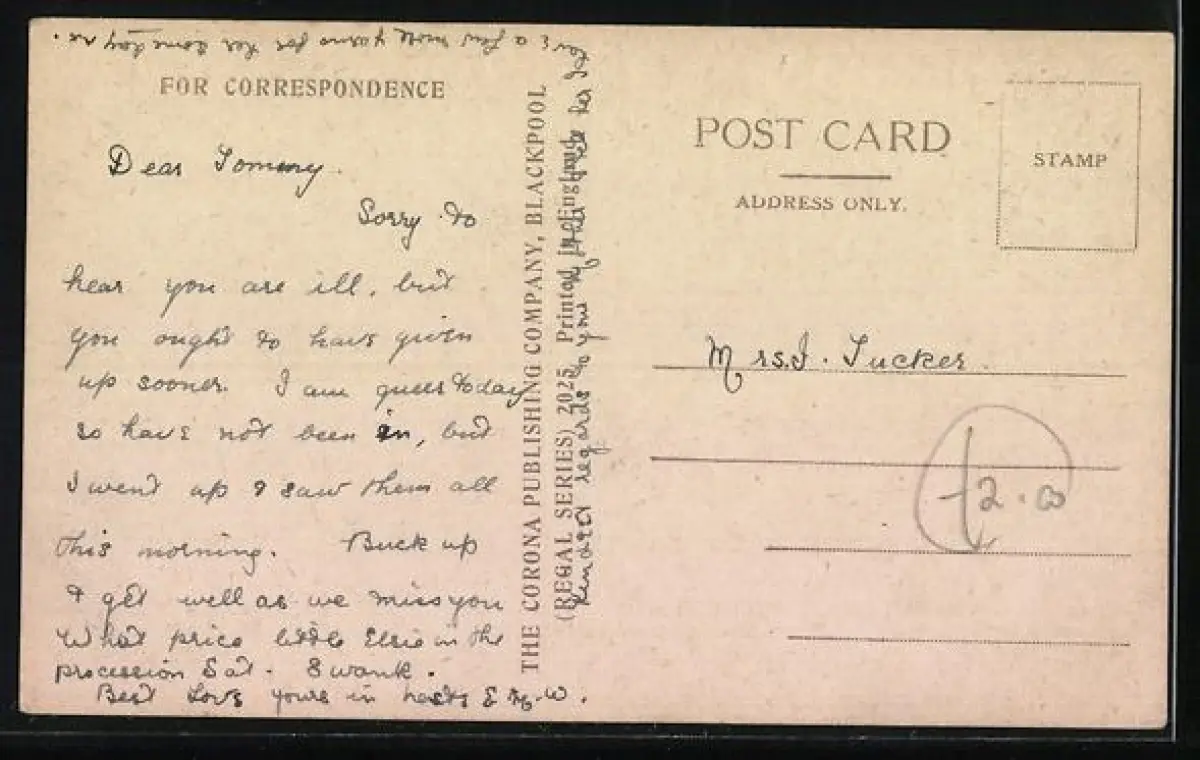 FOR CORRESPONDENCE
Dear Tommy.
Sorry to
hear you are ill, but
you ought to have given
up sooner. I am queer today
so have not been in, but
I went up & saw them all
this morning. Buck up
& get well as we miss you
What price little Elsie in the
procession Sat. Swank.
Best Love yours in haste E M. W.
Kindest regards to your tell her I
have a few more yarns for her some day
THE CORONA PUBLISHING COMPANY, BLACKPOOL
(REGAL SERIES) 2025. Printed in England
POST CARD
ADDRESS ONLY.
STAMP
Mrs. I. Tucker.
2.00